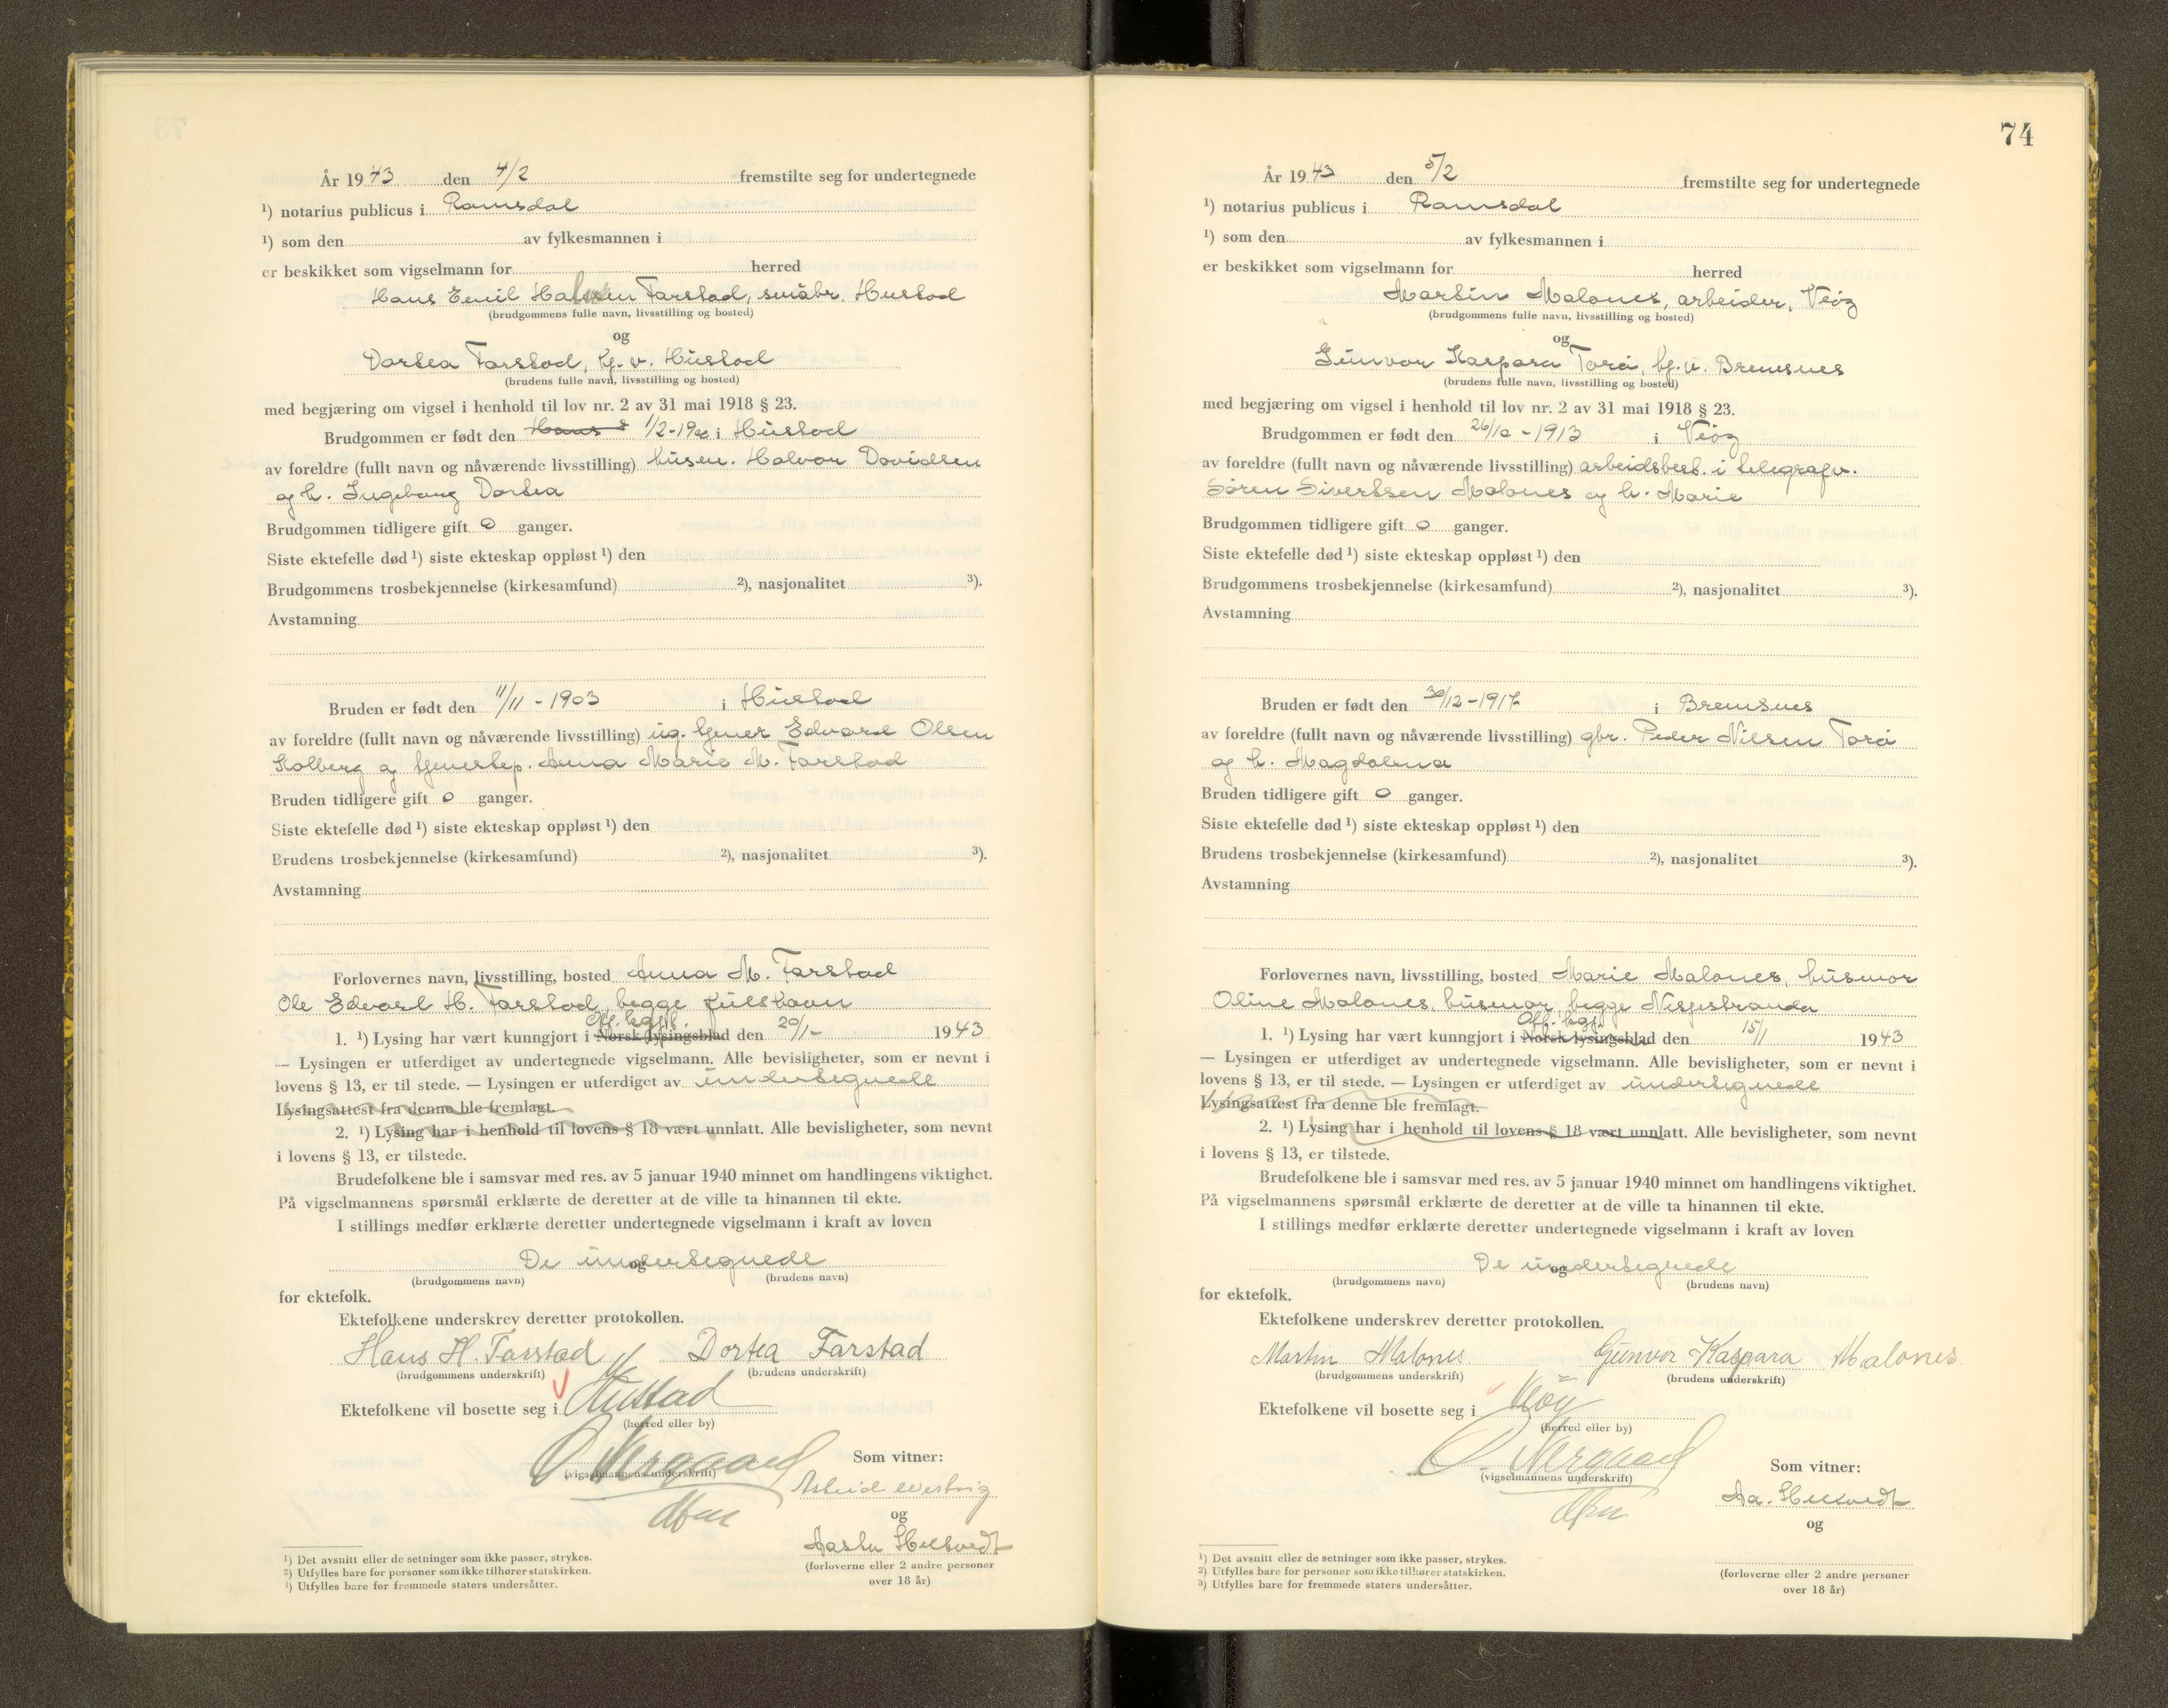 År 1943 den 4/2 fremstilte seg for undertegnede
¹) notarius publicus i Romsdal
¹) som den av fylkesmannen i
er beskikket som vigselmann for herred
Hans Emil Halvsen Farstad, småbr. Hustad
(brudgommens fulle navn, livsstilling og bosted)
og
Dortea Farstad, hj. v. Hustad
(brudens fulle navn, livsstilling og bosted)
med begjæring om vigsel i henhold til lov nr. 2 av 31 mai 1918 § 23.
Brudgommen er født den 1/2-1900 i Hustad
av foreldre (fullt navn og nåværende livsstilling) husm. Halvor Davidsen
og h. Ingeborg Dortea
Brudgommen tidligere gift 0 ganger.
Siste ektefelle død ¹) siste ekteskap oppløst ¹) den
Brudgommens trosbekjennelse (kirkesamfund) ²), nasjonalitet ³).
Avstamning
Bruden er født den 11/11 - 1903 i Hustad
av foreldre (fullt navn og nåværende livsstilling) ug. tjener Edvard Olsen
Kolberg og tjenestep. Anna Marie M. Farstad
Bruden tidligere gift 0 ganger.
Siste ektefelle død ¹) siste ekteskap oppløst ¹) den
Brudens trosbekjennelse (kirkesamfund) ²), nasjonalitet ³).
Avstamning
Forlovernes navn, livsstilling, bosted Anna M. Farstad
Ole Edvard H. Farstad, begge Julshavn
Off. kgj.
1. ¹) Lysing har vært kunngjort i Norsk lysingsblad den 20/1- 1943
— Lysingen er utferdiget av undertegnede vigselmann. Alle bevisligheter, som er nevnt i
lovens § 13, er til stede. — Lysingen er utferdiget av undertegnede
Lysingsattest fra denne ble fremlagt.
2. ¹) Lysing har i henhold til lovens § 18 vært unnlatt. Alle bevisligheter, som nevnt
i lovens § 13, er tilstede.
Brudefolkene ble i samsvar med res. av 5 januar 1940 minnet om handlingens viktighet.
På vigselmannens spørsmål erklærte de deretter at de ville ta hinannen til ekte.
I stillings medfør erklærte deretter undertegnede vigselmann i kraft av loven
De undertegnede
og
(brudgommens navn) (brudens navn)
for ektefolk.
Ektefolkene underskrev deretter protokollen.
Hans H. Farstad Dortea Farstad
(brudgommens underskrift) (brudens underskrift)
Ektefolkene vil bosette seg i Hustad
(herred eller by)
O. Nergaard
(vigselmannens underskrift)
Som vitner:
og
(forloverne eller 2 andre personer
over 18 år)
¹) Det avsnitt eller de setninger som ikke passer, strykes.
²) Utfylles bare for personer som ikke tilhører statskirken.
³) Utfylles bare for fremmede staters undersåtter.
74
År 1943 den 5/2 fremstilte seg for undertegnede
¹) notarius publicus i Romsdal
¹) som den av fylkesmannen i
er beskikket som vigselmann for herred
Martin Malones, arbeider, Veøy
(brudgommens fulle navn, livsstilling og bosted)
og
Gunvor Kaspara Torå, hj. v. Bremsnes
(brudens fulle navn, livsstilling og bosted)
med begjæring om vigsel i henhold til lov nr. 2 av 31 mai 1918 § 23.
Brudgommen er født den 26/10 - 1913 i Veøy
av foreldre (fullt navn og nåværende livsstilling) arbeidsbest. i telegrafv.
Sören Sivertsen Malones og h. Marie
Brudgommen tidligere gift 0 ganger.
Siste ektefelle død ¹) siste ekteskap oppløst ¹) den
Brudgommens trosbekjennelse (kirkesamfund) ²), nasjonalitet ³).
Avstamning
Bruden er født den 30/12-1917 i Bremsnes
av foreldre (fullt navn og nåværende livsstilling) gbr. Peder Nilsen Torå
og h. Magdalena
Bruden tidligere gift 0 ganger.
Siste ektefelle død ¹) siste ekteskap oppløst ¹) den
Brudens trosbekjennelse (kirkesamfund) ²), nasjonalitet ³).
Avstamning
Forlovernes navn, livsstilling, bosted Marie Malones, husmor
Oline Malones, husmor, begge Nesjestranda
Off. kgj.
1. ¹) Lysing har vært kunngjort i Norsk lysingsblad den 15/1 1943
— Lysingen er utferdiget av undertegnede vigselmann. Alle bevisligheter, som er nevnt i
lovens § 13, er til stede. — Lysingen er utferdiget av undertegnede
Lysingsattest fra denne ble fremlagt.
2. ¹) Lysing har i henhold til lovens § 18 vært unnlatt. Alle bevisligheter, som nevnt
i lovens § 13, er tilstede.
Brudefolkene ble i samsvar med res. av 5 januar 1940 minnet om handlingens viktighet.
På vigselmannens spørsmål erklærte de deretter at de ville ta hinannen til ekte.
I stillings medfør erklærte deretter undertegnede vigselmann i kraft av loven
De undertegnede
og
(brudgommens navn) (brudens navn)
for ektefolk.
Ektefolkene underskrev deretter protokollen.
Martin Malones Gunvor Kaspara Malones
(brudgommens underskrift) (brudens underskrift)
Ektefolkene vil bosette seg i Veøy
(herred eller by)
O. Nergaard
(vigselmannens underskrift)
Som vitner:
og
(forloverne eller 2 andre personer
over 18 år)
¹) Det avsnitt eller de setninger som ikke passer, strykes.
²) Utfylles bare for personer som ikke tilhører statskirken.
³) Utfylles bare for fremmede staters undersåtter.